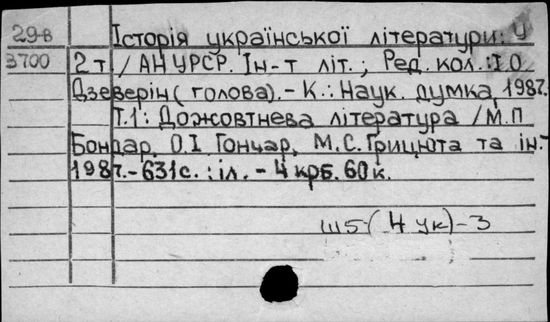 29-в Історія української літератури: У
В700 2 т. / АН УРСР. Ін-т літ.; Ред. кол.: І.О.
Дзеверін (голова). - К.: Наук. думка, 1987.
Т.1: Дожовтнева література / М.П.
Бондар, О.І. Гончар, М.С. Грицюта та ін.-
1987. - 631с.: іл. - 4 крб. 60 к.
Ш5-(4 ук)-3